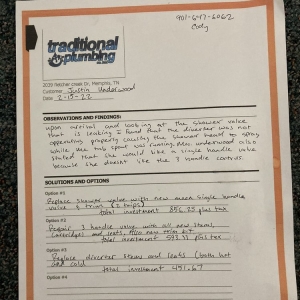 901-647-6062
Cody
traditional
plumbing
2039 Fletcher Creek Dr. Memphis, TN
Customer Justin Underwood
Date 2-15-22
OBSERVATIONS AND FINDINGS:
Upon arrival and looking at the shower valve
that is leaking I found that the diverter was not
operating properly causing the shower head to spray
while the tub spout was running. Mrs. underwood also
stated that she would like a single handle valve
because she doesnt like the 3 handle controls.
SOLUTIONS AND OPTIONS
Option #1
Replace shower valve with new moen single handle
valve & trim (2 trips)
total investment 856.25 plus tax
Option #2
Repair 3 handle valve with all new stems,
cartridges and seats, plus new trim kit
total investment 593.11 plus tax
Option #3
Replace diverter stem and seats (both hot
and cold
total investment 451.67
Option #4